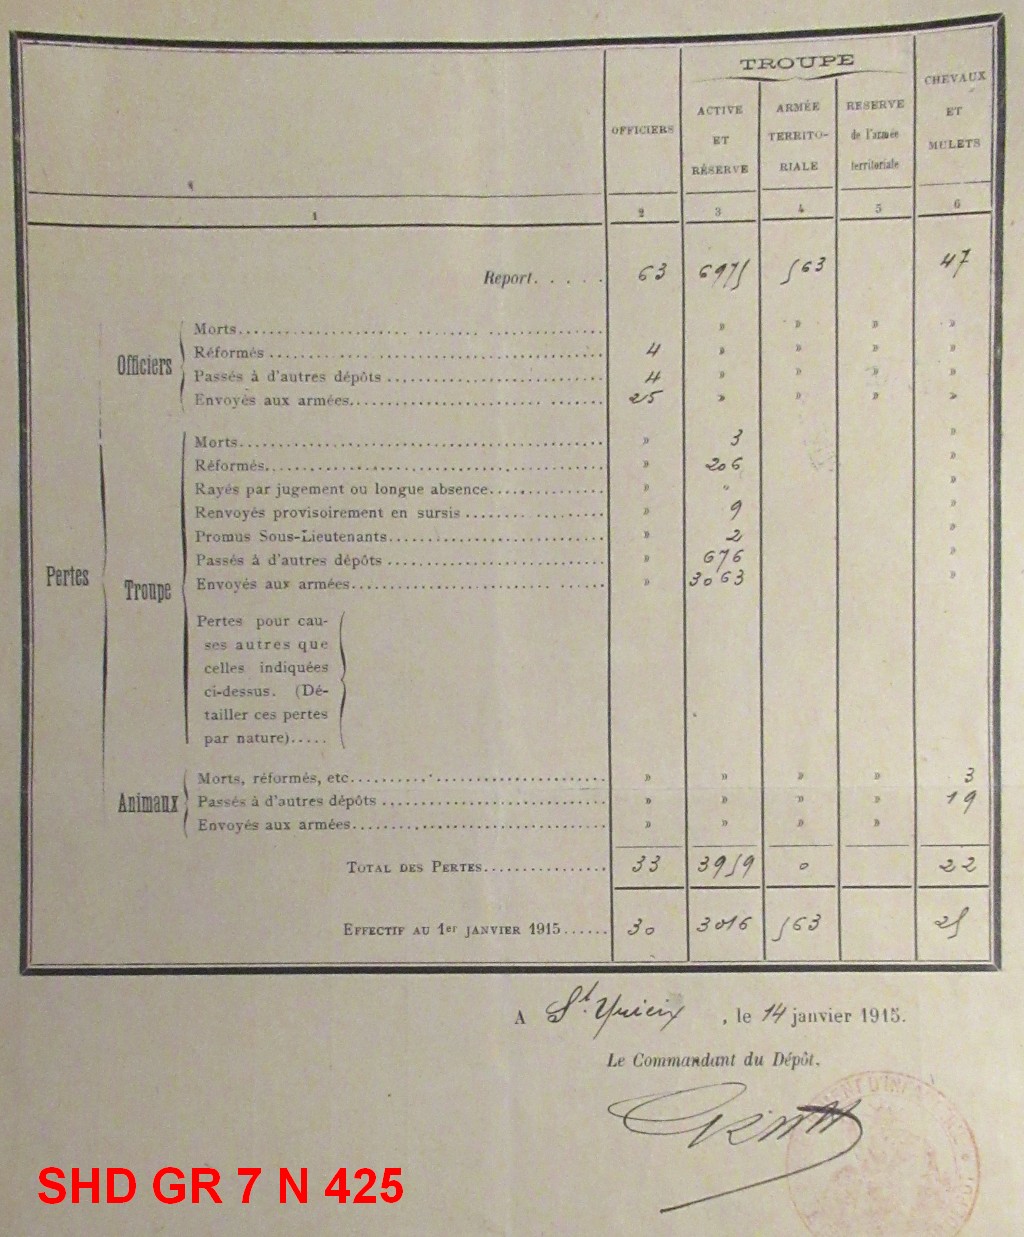 TROUPE
OFFICIERS
ACTIVE ET RÉSERVE
ARMÉE TERRITO-RIALE
RESERVE de l'armée territoriale
CHEVAUX ET MULETS
1 2 3 4 5 6
Report..... 63 6975 563 47
Pertes
Officiers
Morts.......... » » » »
Réformés.......... 4 » » » »
Passés à d'autres dépôts.......... 4 » » » »
Envoyés aux armées.......... 25 » » » »
Troupe
Morts.......... » 3 »
Réformés.......... » 206 »
Rayés par jugement ou longue absence.......... » » »
Renvoyés provisoirement en sursis.......... » 9 »
Promus Sous-Lieutenants.......... » 2 »
Passés à d'autres dépôts.......... » 676 »
Envoyés aux armées.......... » 3063 »
Pertes pour cau-
ses autres que
celles indiquées
ci-dessus. (Dé-
tailler ces pertes
par nature).....
Animaux
Morts, réformés, etc.......... » » » » 3
Passés à d'autres dépôts.......... » » » » 19
Envoyés aux armées.......... » » » »
TOTAL DES PERTES.......... 33 3959 0 22
EFFECTIF AU 1er JANVIER 1915...... 30 3016 563 25
A St. Yrieix, le 14 janvier 1915.
Le Commandant du Dépôt.
SHD GR 7 N 425